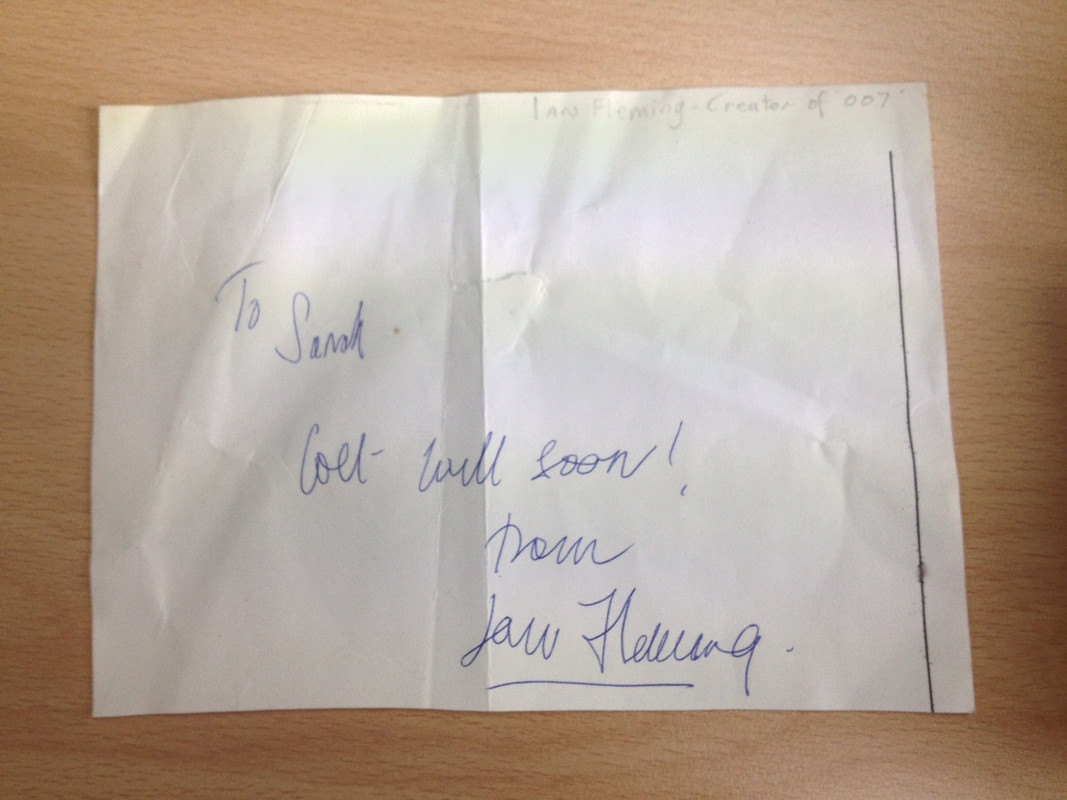 IAN Fleming - Creator of 007
To
Sarah
Get well soon!
from
Ian Fleming.